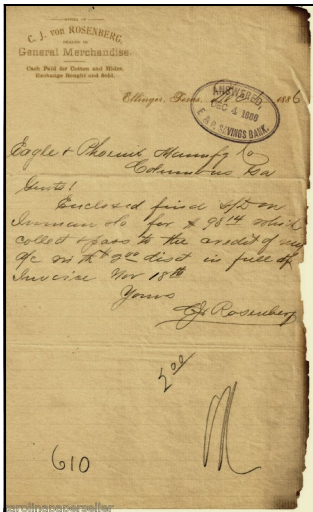 OFFICE OF
C. J. von ROSENBERG,
DEALER IN
General Merchandise.
Cash Paid for Cotton and Hides.
Exchange Bought and Sold.
Ellinger, Texas, 1886
ANSWERED,
DEC 4 1886
E. & P. SAVINGS BANK.
Eagle & Phoenix Manufg Co
Columbus Ga
Gents!
Enclosed find s/D on
Inman & Co for $ 98 14 which
collect & pass to the credit of my
a/c with 2 00 disct in full of
Invoice Nov 18th
Yours
CJv Rosenberg
2 00
610
carolinapaperseller